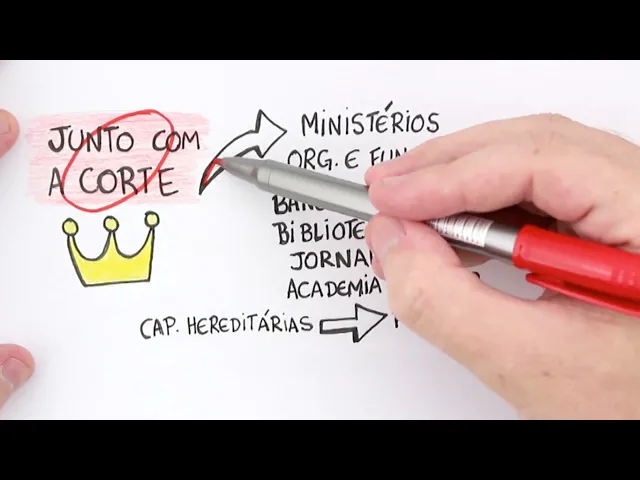 JUNTO COM
A CORTE
MINISTÉRIOS
ORG. E
JORNA
ACADEMIA
CAP. HEREDITÁRIAS